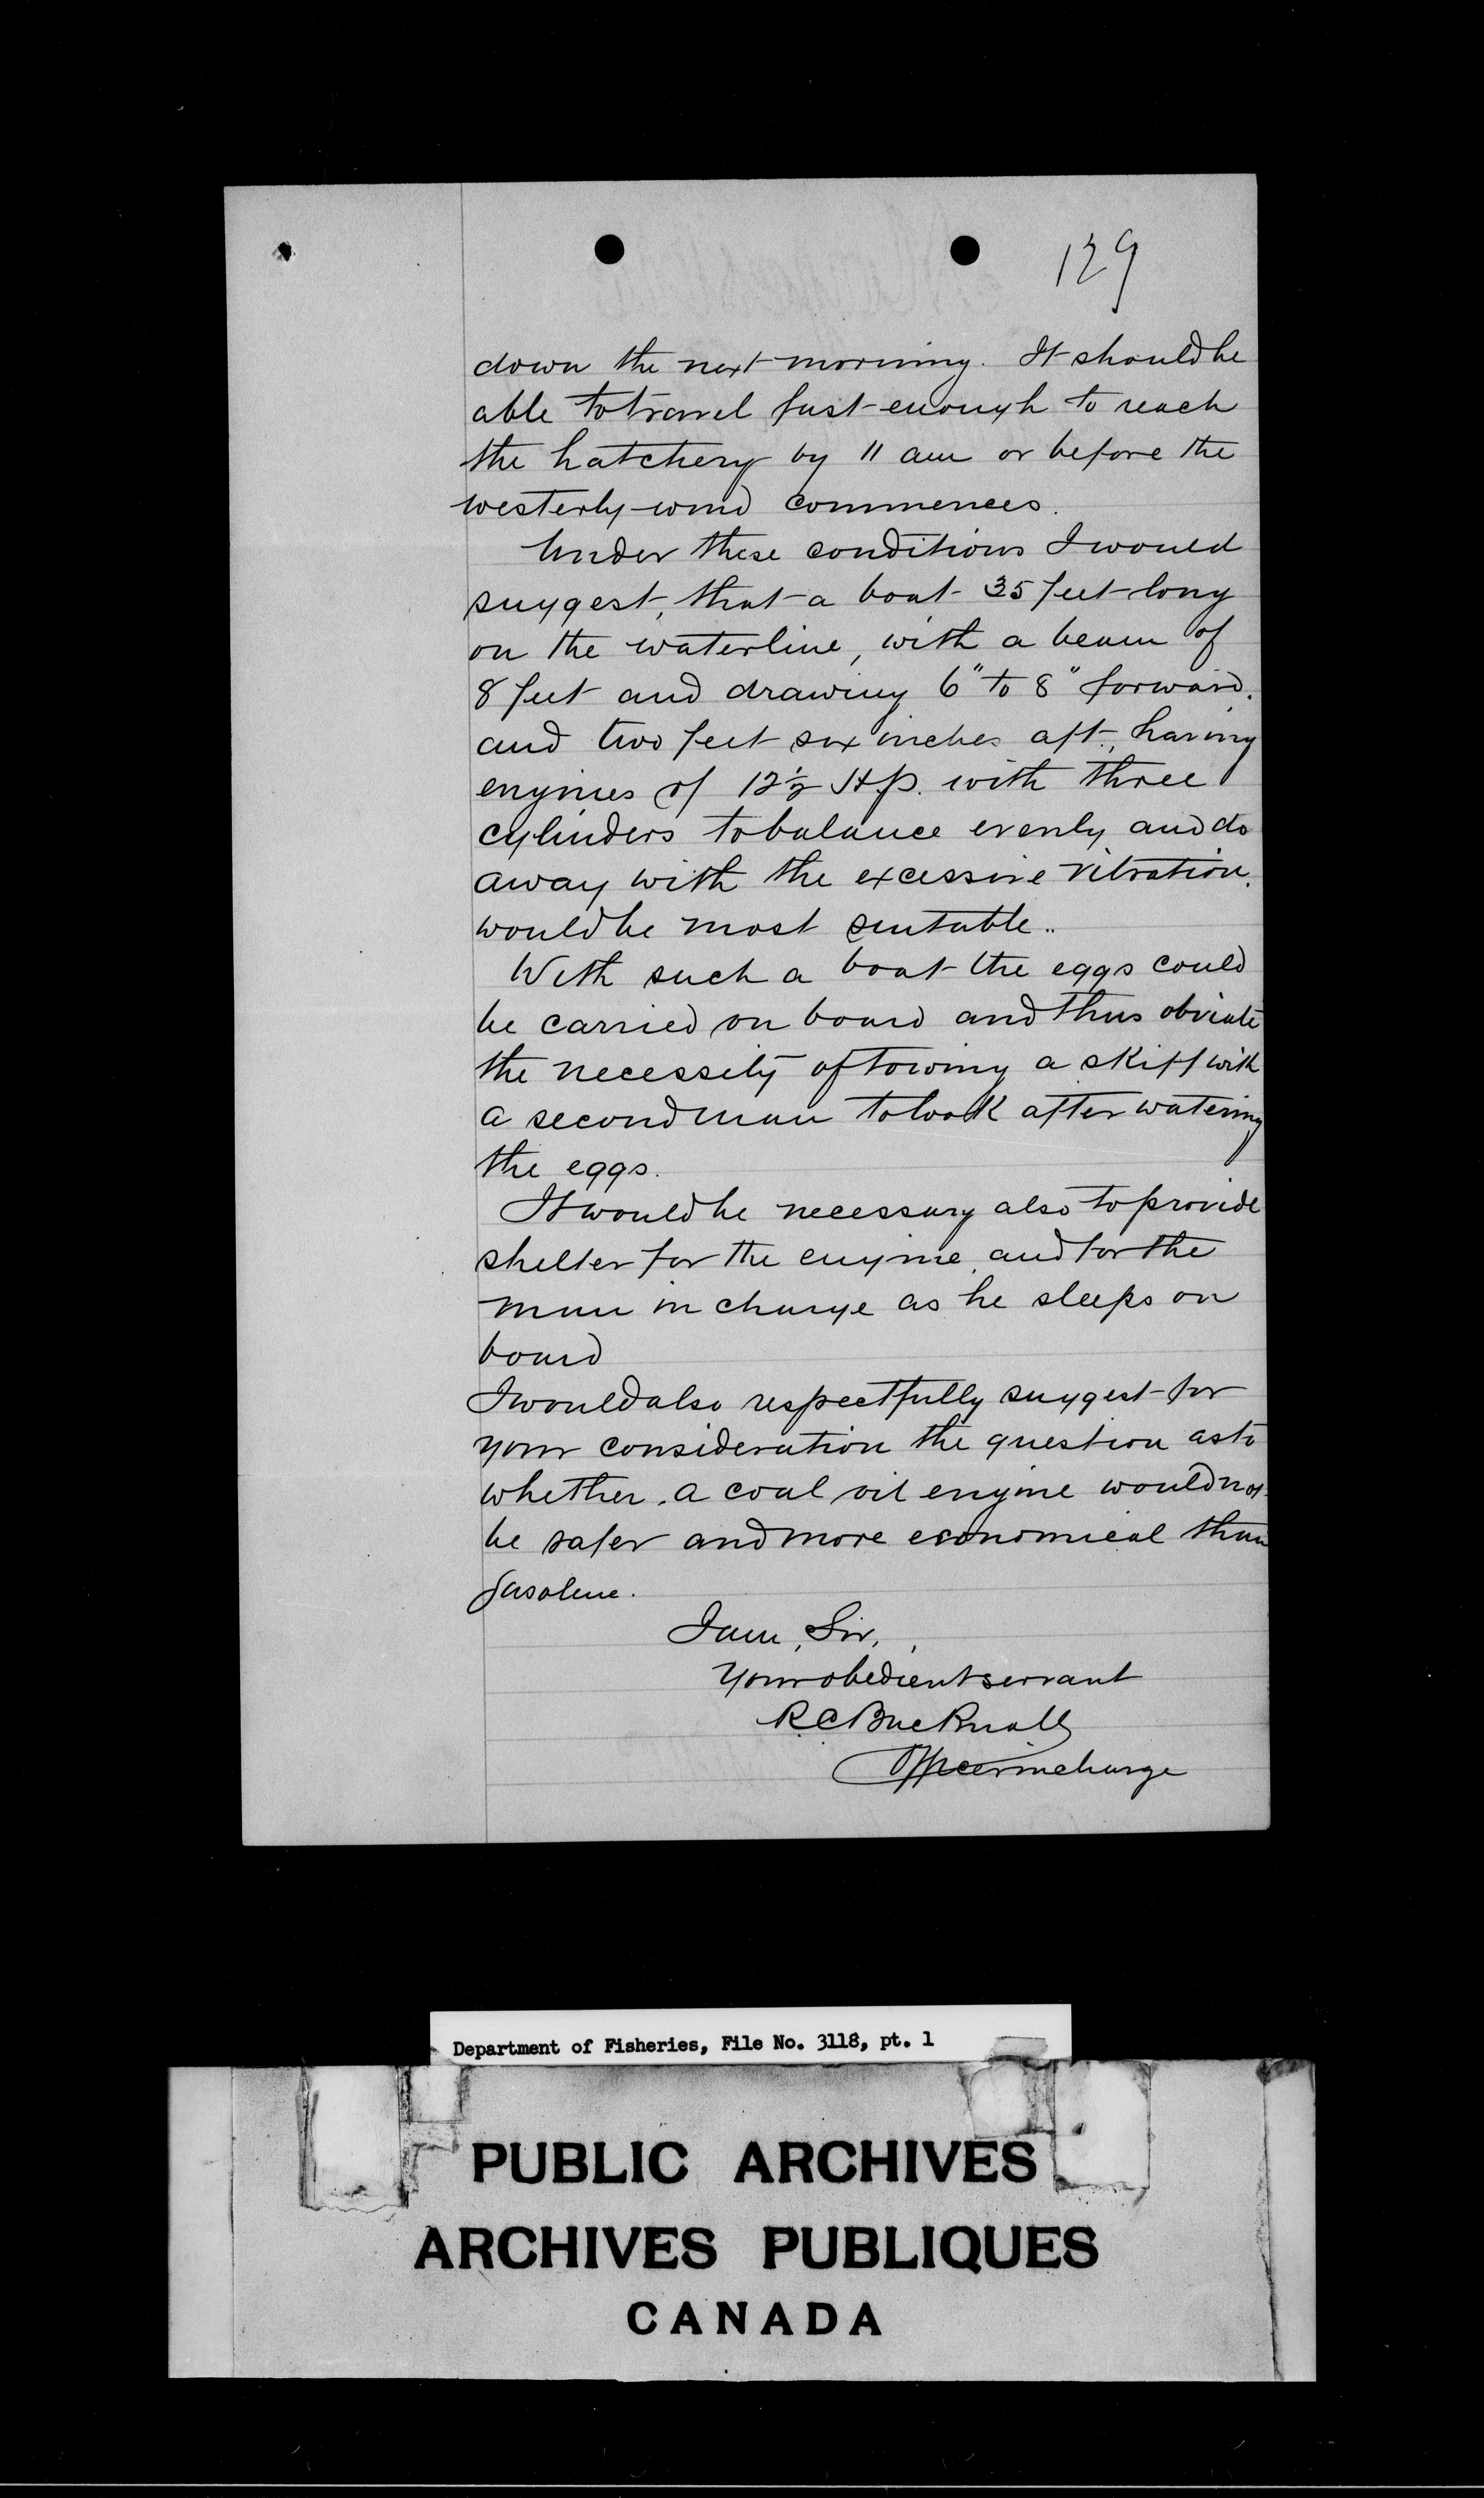 129
down the next morning. It should be
able to travel fast enough to reach
the hatchery by 11 am or before the
westerly wind commences.
Under these conditions I would
suggest, that a boat 35 feet long
on the waterline, with a beam of
8 feet and drawing 6" to 8" forward.
and two feet six inches aft, having
engines of 12½ H.p. with three
cylinders to balance evenly and do
away with the excessive vibration.
would be most suitable..
With such a boat the eggs could
be carried on board and thus obviate
the necessity of towing a skiff with
a second man to look after watering
the eggs.
It would be necessary also to provide
shelter for the engine, and for the
man in charge as he sleeps on
board
I would also respectfully suggest for
your consideration the question as to
whether a coal oil engine would not
be safer and more economical than
gasolene.
I am, Sir,
Your obedient servant
R.C. Bucknall
Officer in charge
Department of Fisheries, File No. 3118, pt. 1
PUBLIC ARCHIVES
ARCHIVES PUBLIQUES
CANADA